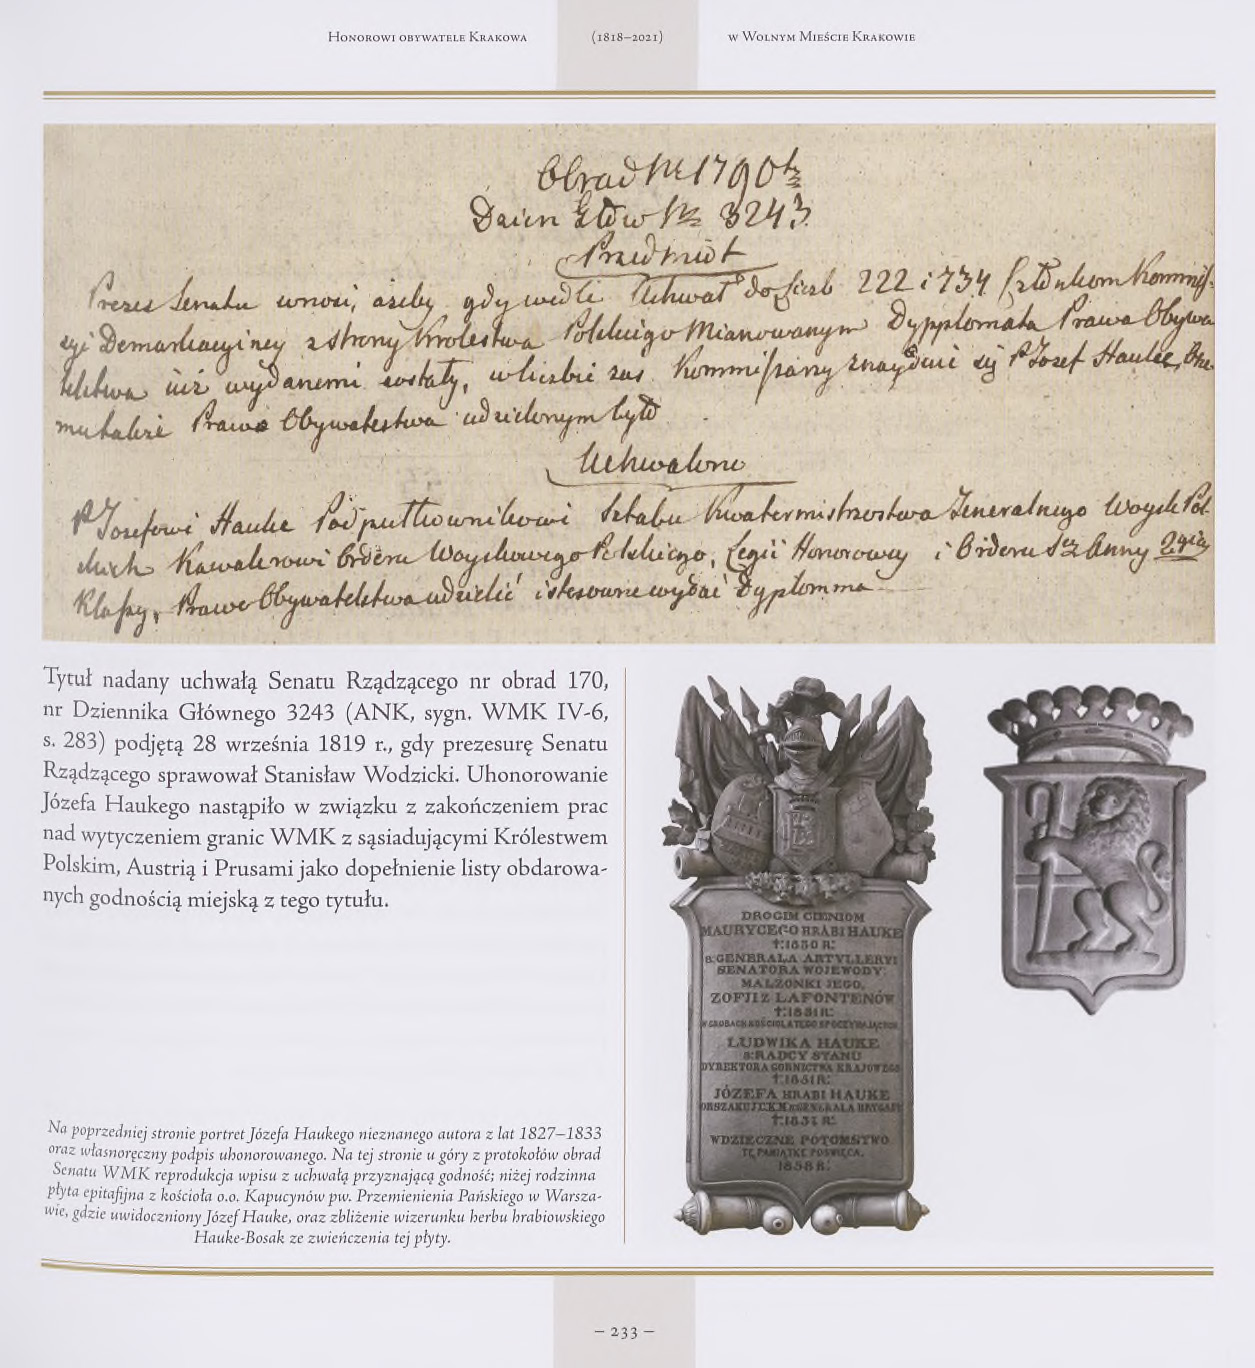 Honorowi obywatele Krakowa (1818–2021) w Wolnym Mieście Krakowie
Obrad Nr 170
Dzien Głów Nr 3243
Przedmiot
Prezes Senatu wnosi, ażeby gdy wedle Uchwał do Liczb 222 i 734 Członkom Kommis-
syi Demarkacyiney z strony Krolestwa Polskiego Mianowanym Dypplomata Prawa Obywa
telstwa iuż wydanemi zostały, w liczbie zas Kommissarzy znayduie się P Jozef Hauke,
Prawo Obywatelstwa udzielonym było
Uchwalono
P Jozefowi Hauke Podpułkownikowi Sztabu Kwatermistrzostwa Jeneralnego Woysk Pol-
skich Kawalerowi Orderu Woyskowego Polskiego, Legii Honorowey i Orderu Stey Anny 2giey
Klassy, Prawo Obywatelstwa udzielić i stosowne wydać Dyplomma
Tytuł nadany uchwałą Senatu Rządzącego nr obrad 170,
nr Dziennika Głównego 3243 (ANK, sygn. WMK IV-6,
s. 283) podjętą 28 września 1819 r., gdy prezesurę Senatu
Rządzącego sprawował Stanisław Wodzicki. Uhonorowanie
Józefa Haukego nastąpiło w związku z zakończeniem prac
nad wytyczeniem granic WMK z sąsiadującymi Królestwem
Polskim, Austrią i Prusami jako dopełnienie listy obdarowa-
nych godnością miejską z tego tytułu.
DROGIM CIENIOM
MAURYCEGO HRABI HAUKE
†1830 R:
B: GENERAŁA ARTYLLERYI
SENATORA WOJEWODY:
MAŁŻONKI JEGO,
ZOFJI Z LAFONTENÓW
†1831 R:
W GROBACH KOŚCIOŁA TEGO SPOCZYWAJĄCYCH
LUDWIKA HAUKE
B: RADCY STANU
DYREKTORA GÓRNICTWA KRAJOWEGO
†1851 R:
JÓZEFA HRABI HAUKE
ORSZAKU J.C.K.M. GENERAŁA BRYGADY
†1837 R:
WDZIĘCZNE POTOMSTWO
TĘ PAMIĄTKĘ POŚWIĘCA.
1858 R:
Na poprzedniej stronie portret Józefa Haukego nieznanego autora z lat 1827–1833
oraz własnoręczny podpis uhonorowanego. Na tej stronie u góry z protokołów obrad
Senatu WMK reprodukcja wpisu z uchwałą przyznającą godność; niżej rodzinna
płyta epitafijna z kościoła o.o. Kapucynów pw. Przemienienia Pańskiego w Warsza-
wie, gdzie uwidoczniony Józef Hauke, oraz zbliżenie wizerunku herbu hrabiowskiego
Hauke-Bosak ze zwieńczenia tej płyty.
– 233 –